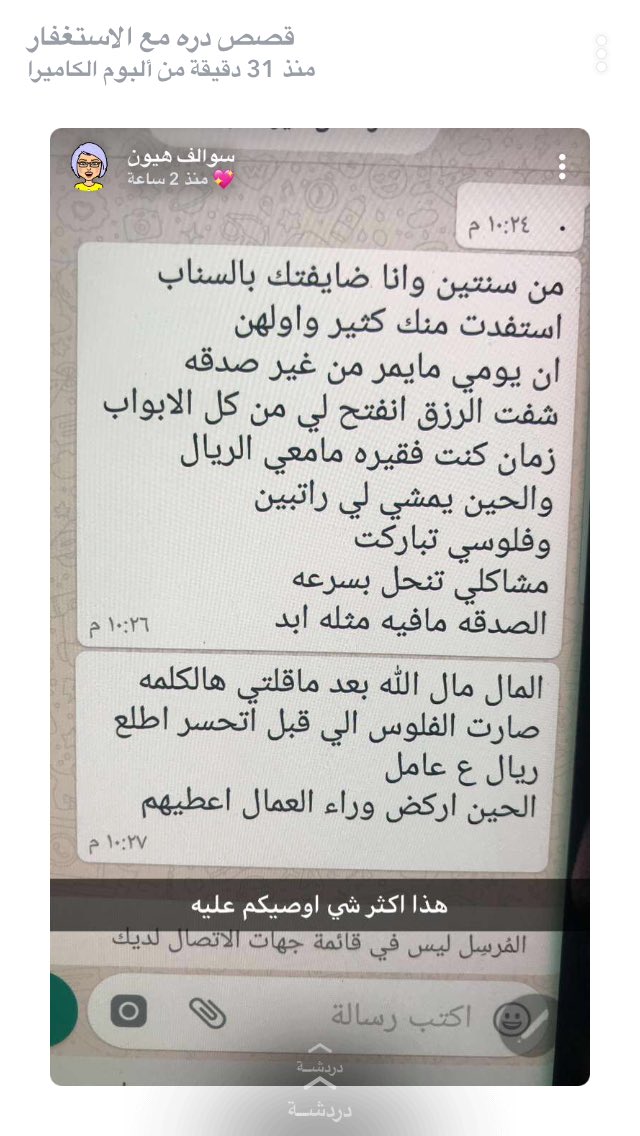 قصص دره مع الاستغفار
منذ 31 دقيقة من ألبوم الكاميرا
سوالف هيون
💖 منذ 2 ساعة
.
١٠:٢٤ م
من سنتين وانا ضايفتك بالسناب
استفدت منك كثير واولهن
ان يومي مايمر من غير صدقه
شفت الرزق انفتح لي من كل الابواب
زمان كنت فقيره مامعي الريال
والحين يمشي لي راتبين
وفلوسي تباركت
مشاكلي تنحل بسرعه
الصدقه مافيه مثله ابد
١٠:٢٦ م
المال مال الله بعد ماقلتي هالكلمه
صارت الفلوس الي قبل اتحسر اطلع
ريال ع عامل
الحين اركض وراء العمال اعطيهم
١٠:٢٧ م
هذا اكثر شي اوصيكم عليه
المُرسِل ليس في قائمة جهات الاتصال لديك
اكتب رسالة
دردشة
دردشة